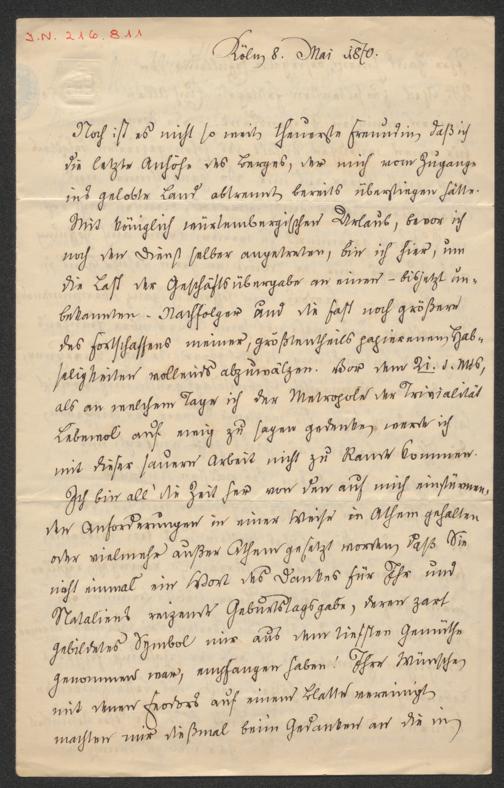 J.N. 216.811
Köln 8. Mai 1870.
Noch ist es nicht so weit, theuerste Freundin, daß ich
die letzte Anhöhe des Berges, der mich vom Zugange
ins gelobte Land abtrennt, bereits überstiegen hätte.
Mit königlich würtembergischem Urlaub, bevor ich
noch den Dienst selber angetreten, bin ich hier, um
die Last der Geschäftsübergabe an einen – bis jetzt un-
bekannten – Nachfolger und die fast noch größere
des Fortschaffens meiner, größtentheils papierenen, Hab-
seligkeiten vollends abzuwälzen. Vor dem 21. d. Mts,
als an welchem Tage ich der Metropole der Trivialität
Lebewol auf ewig zu sagen gedenke, werde ich
mit dieser sauern Arbeit nicht zu Rande kommen.
Ich bin all' die Zeit her von den auf mich einstürmen-
den Anforderungen in einer Weise in Athem gehalten
oder vielmehr außer Athem gesetzt worden, daß Sie
nicht einmal ein Wort des Dankes für Ihr und
Nataliens reizende Geburtstagsgabe, deren zart
gebildetes Symbol mir aus dem tiefsten Gemüthe
genommen war, empfangen haben! Ihre Wünsche,
mit denen Feodors auf einem Blatte vereinigt,
machten mir dießmal beim Gedanken an die in